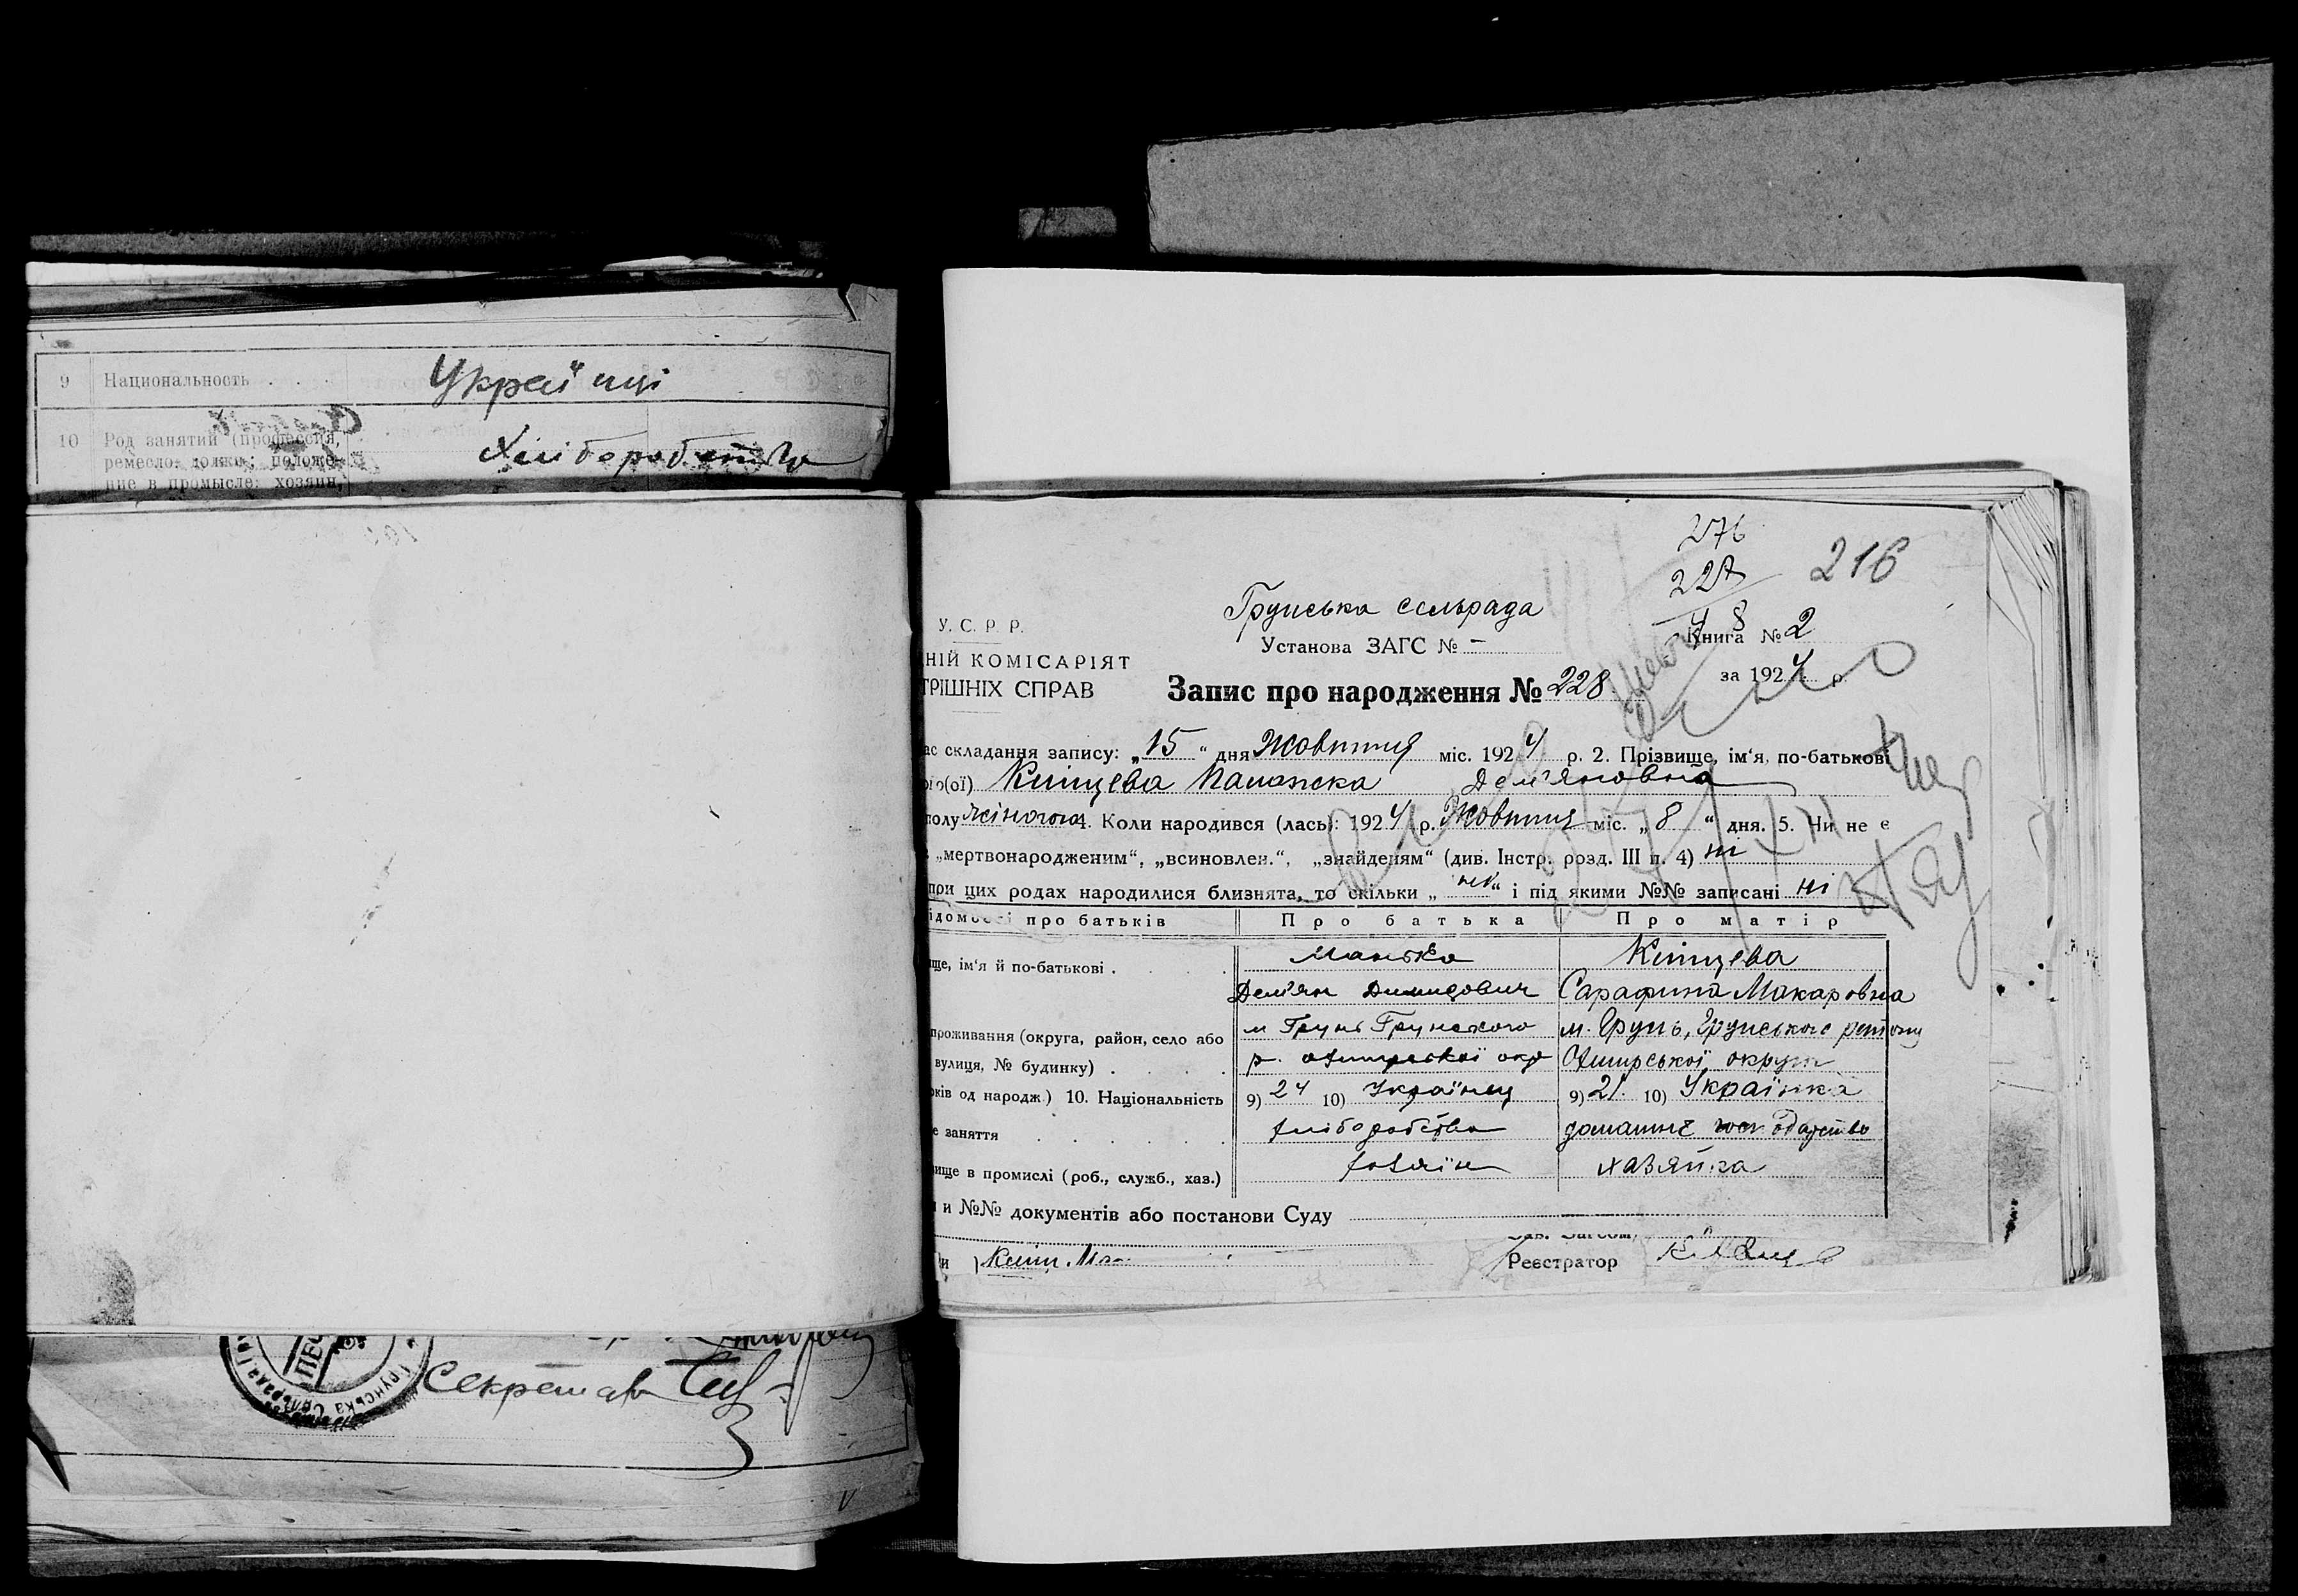 9 Национальность . . . Україці
10 Род занятий (профессия, Хліборобство
ремесло, должн.; положе-
ние в промысле: хозяин,
Секретар
Грунська Сільрада
276
228
48
216
Грунська сельрада
У. С. Р. Р.
Установа ЗАГС № -
Книга № 2
НІЙ КОМІСАРІЯТ
ТРІШНІХ СПРАВ
Запис про народження № 228
за 1924 р.
ас складання запису: „15“ дня Жовтня міс. 1924 р. 2. Прізвище, ім'я, по-батькові
ого(ої) Кліщева Палажка Дем'яновна
полу жіночого 4. Коли народився (лась): 1924 р. Жовтня міс. „8“ дня. 5. Чи не є
„мертвонародженим“, „всиновлен.“, „знайденям“ (див. Інстр. розд. III п. 4) ні
при цих родах народилися близнята, то скільки „ні“ і під якими №№ записані ні
ідомості про батьків Про батька Про матір
ще, ім'я й по-батькові . . . . Манько Кліщева
Дем'ян Демидович Сарафина Макаровна
м Грунь Грунського м. Грунь, Грунського району
проживання (округа, район, село або
р. Охтирської окр Охтирської округи
вулиця, № будинку) . . . .
оків од народж.) 10. Національність 9) 24 10) Українец 9) 21. 10) Українка
е заняття . . . . . . хліборобство домашнє господарство
вище в промислі (роб., служб., хаз.) хазяїн хазяйка
и №№ документів або постанови Суду
Зав. Загсом
и
Реєстратор